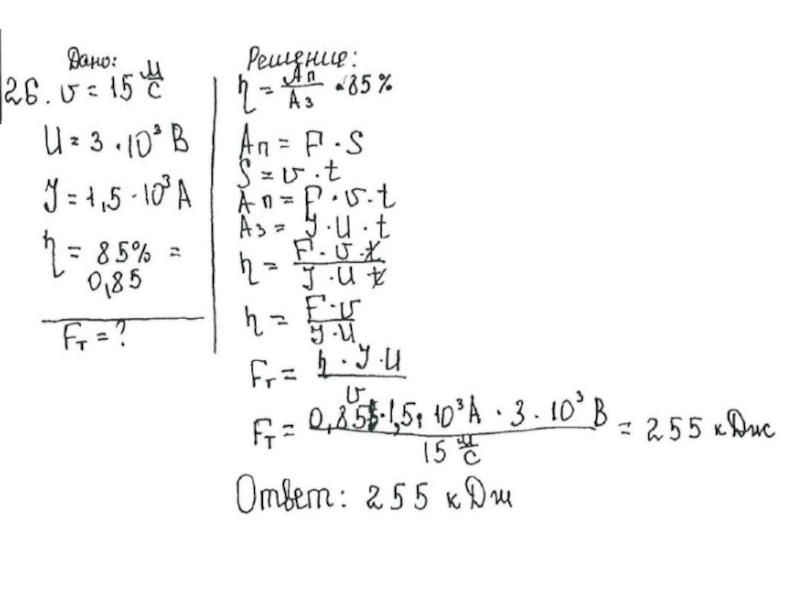 Дано:
26. v = 15 м/с
U = 3 · 10³ В
J = 1,5 · 10³ А
η = 85% =
0,85
Fт = ?
Решение:
η = Ап/Аз · 85%
Ап = F · S
S = v · t
Ап = F · v · t
Аз = J · U · t
η = F · v · t / J · U t
η = F · v / J · U
Fт = η · J · U / v
Fт = 0,85 · 1,5 · 10³ А · 3 · 10³ В / 15 м/с = 255 кДж
Ответ: 255 кДж